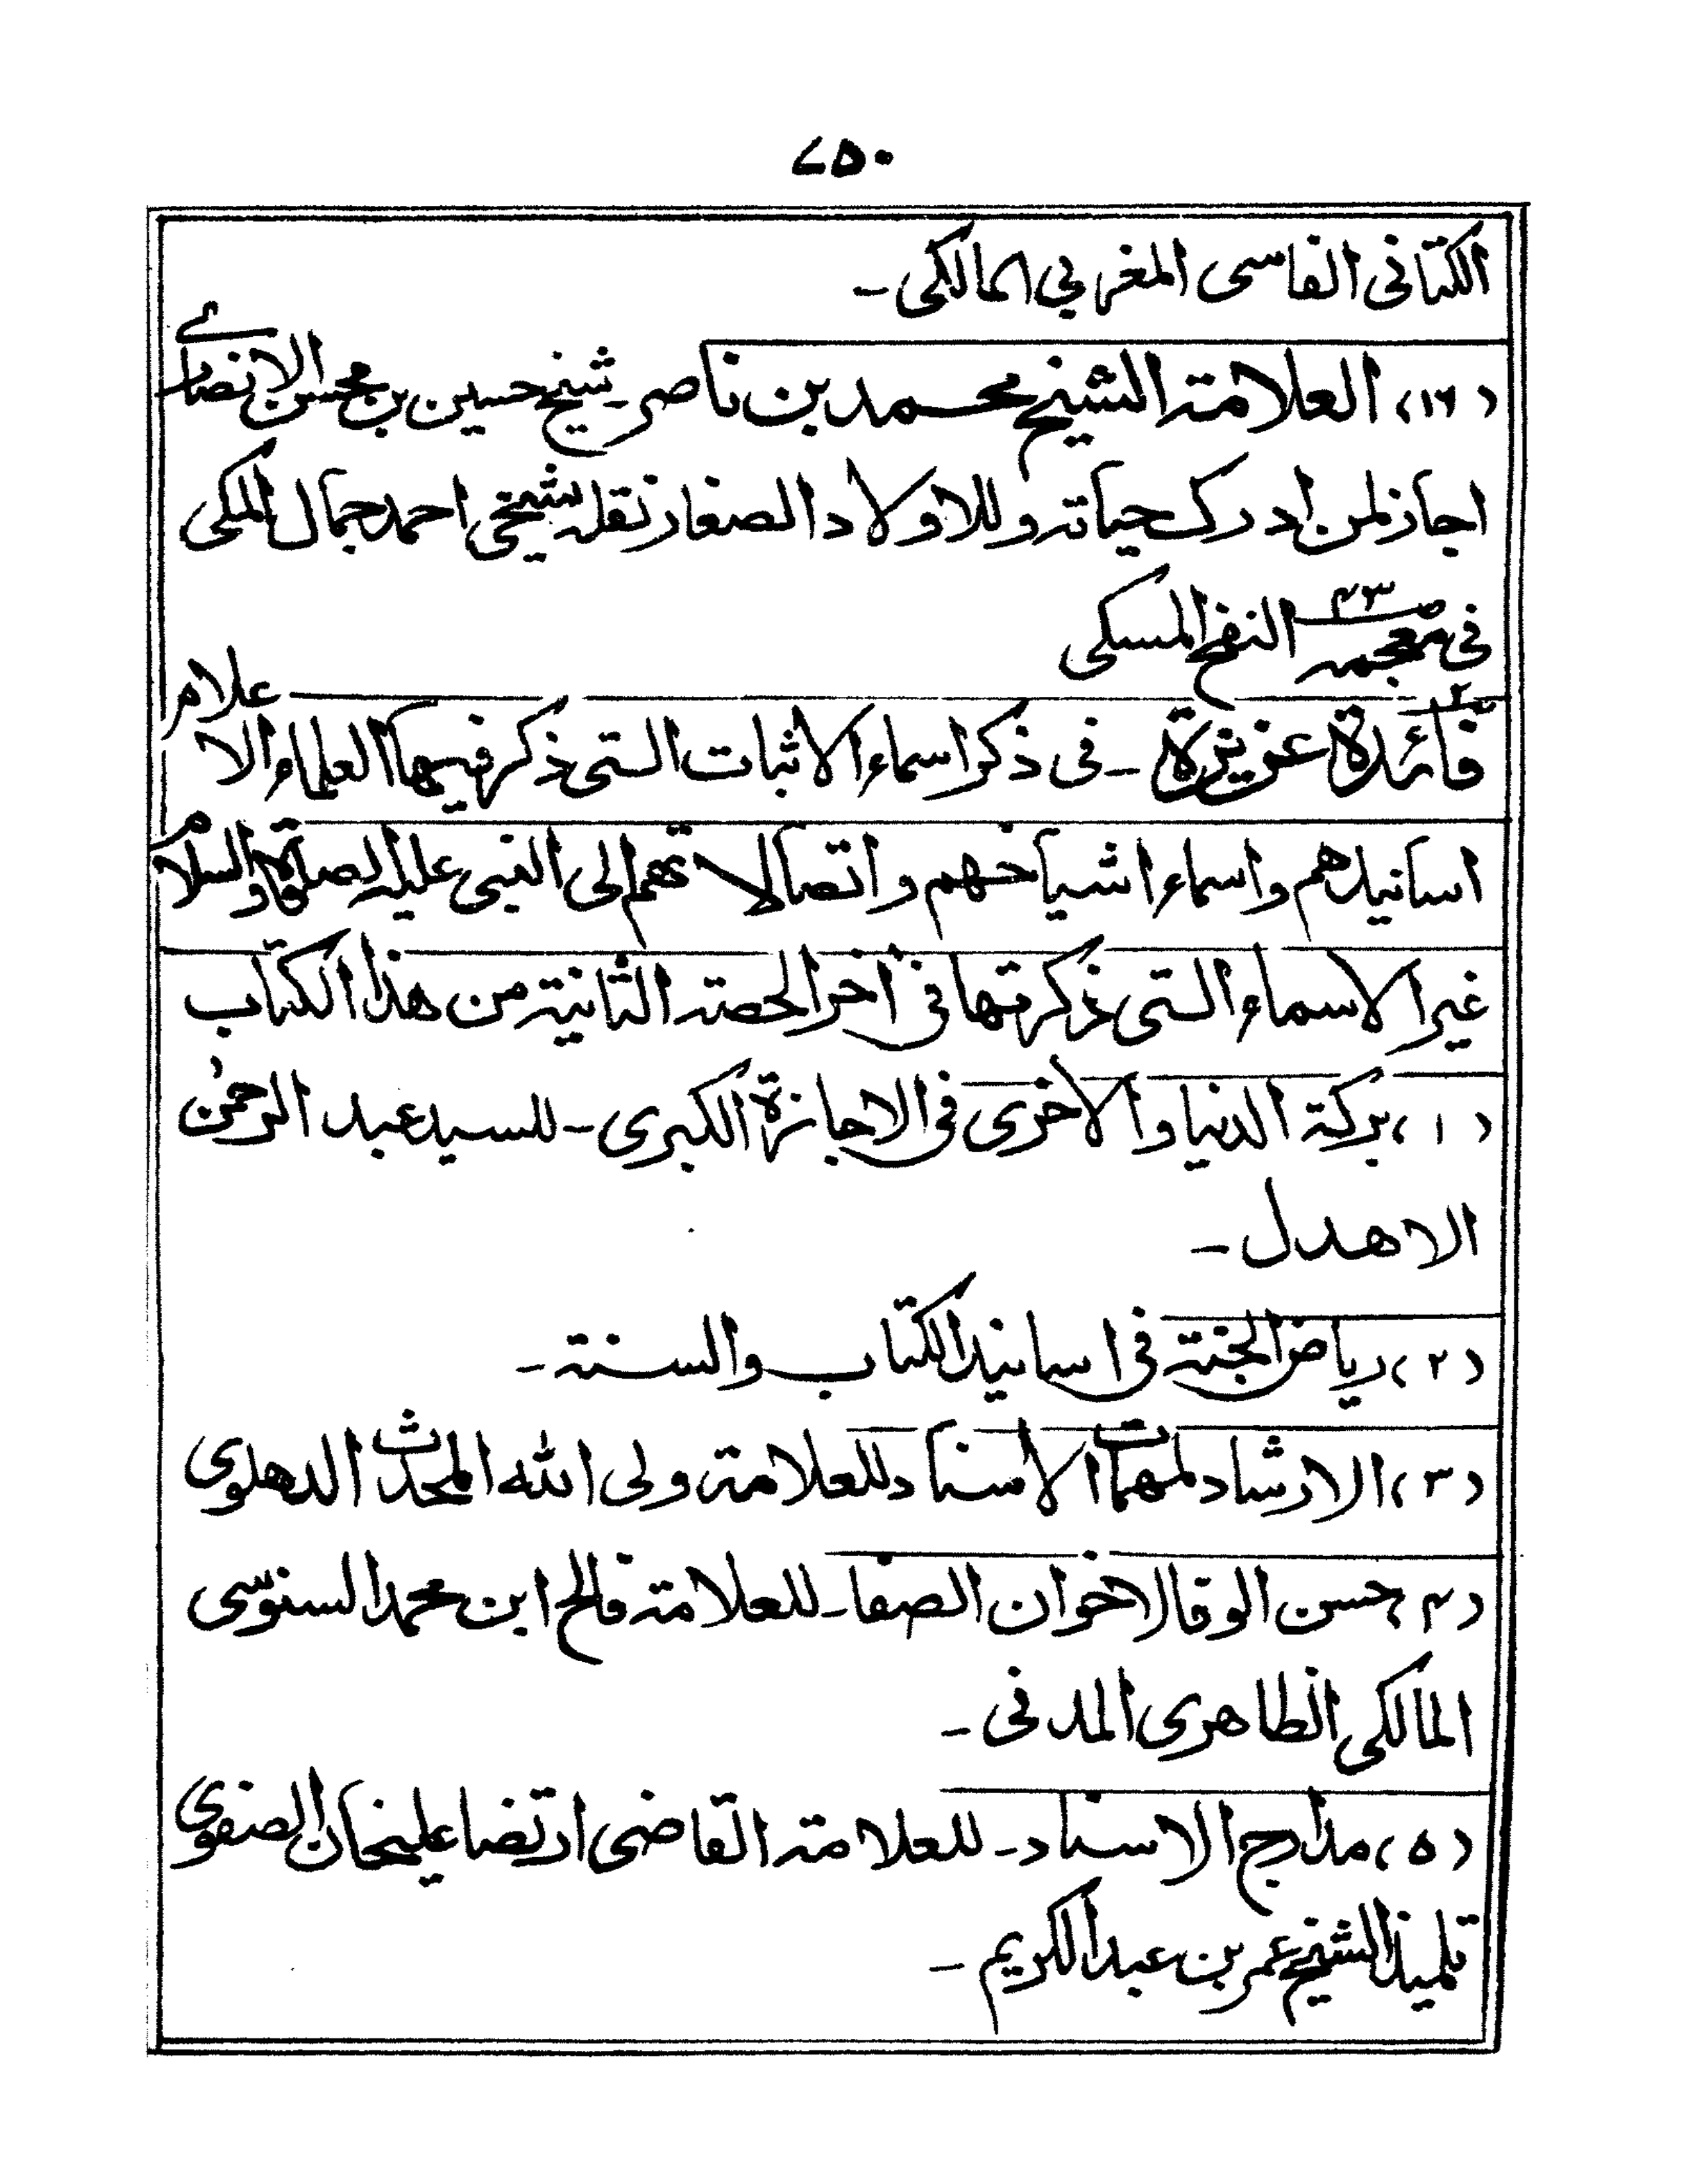 ۷۵۰
الکتانی الفاسی المغربي المالکی ـ
(۱۶) العلامۃ الشیخ محمد بن ناصر ـ شیخ حسین بن محسن الانصاری
اجاز لمن ادرک حیاتہ وللاولاد الصغار نقلہ شیخی احمد جمال المکی
فی معجمہ ص۴۳ النفح المسکی
فائدة عزیزة ـ فی ذکر اسماء الاثبات التی ذکر فیھا العلماء الاعلام
اسانیدھم واسماء اشیاخھم واتصالاتھم الی النبی علیہ الصلوة والسلام
غیر الاسماء التی ذکرتھا فی اٰخر الحصۃ الثانیۃ من ھذا الکتاب
(۱) برکة الدنیا والاخری فی الاجازة الکبری ـ للسید عبد الرحمٰن
الاھدل ـ
(۲) ریاض الجنۃ فی اسانید الکتاب والسنۃ ـ
(۳) الارشاد لمھمات الاسناد للعلامۃ ولی اللّٰہ المحدث الدھلوی
(۴) حسن الوفا لاخوان الصفا ـ للعلامۃ فالح ابن محمد السنوسی
المالکی الظاھری المدنی ـ
(۵) مدارج الاسناد ـ للعلامۃ القاضی ارتضا علیخان الصفوی
تلمیذ الشیخ عمر بن عبد الکریم ـ